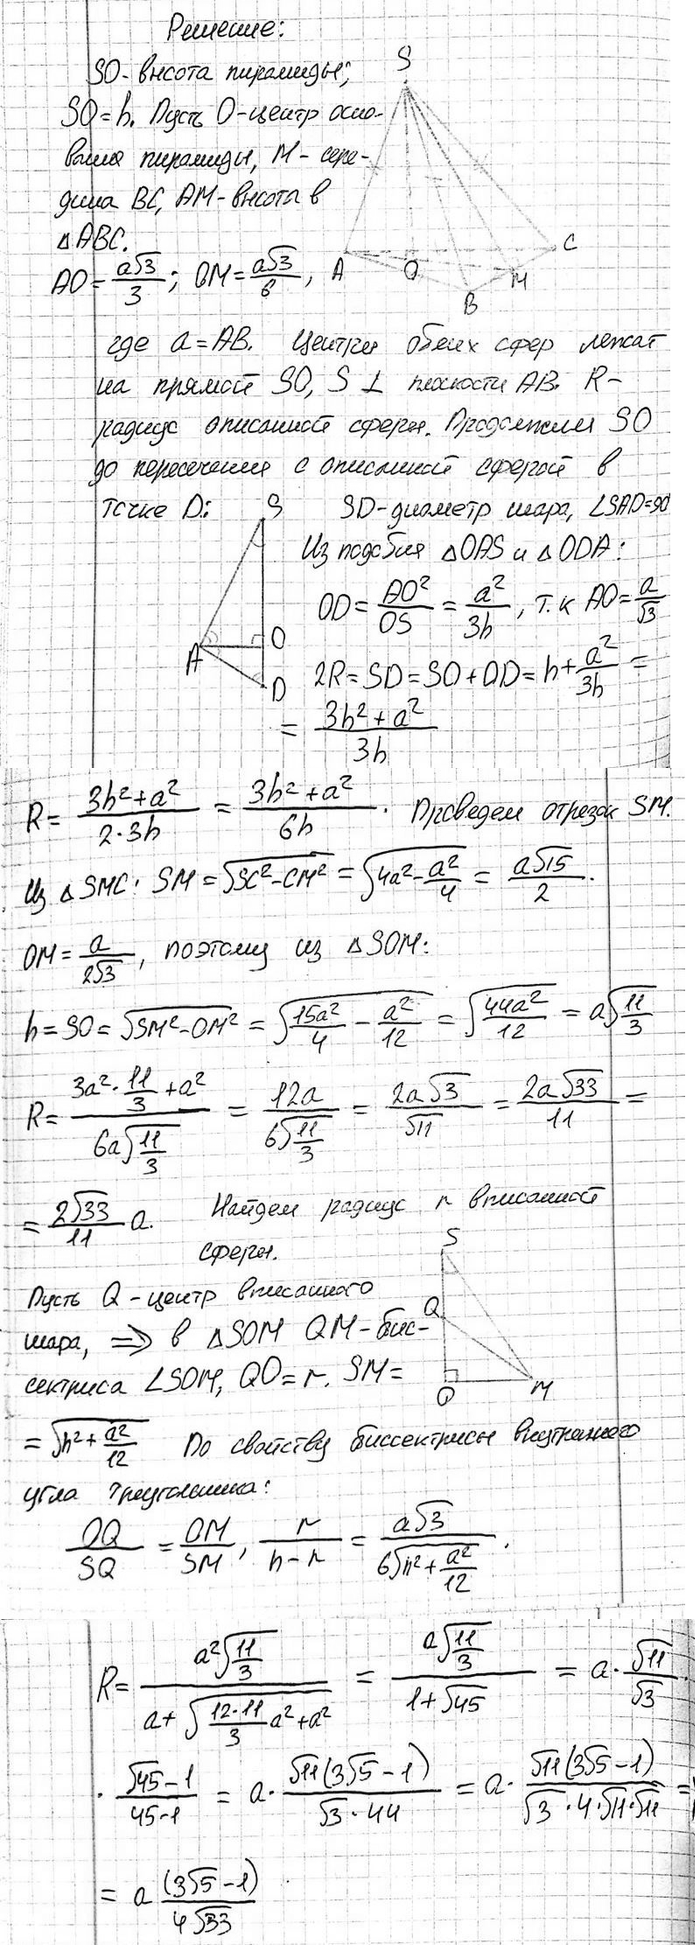 Решение:
SO - высота пирамиды;
SO = h. Пусть O - центр осно-
вания пирамиды, M - сере-
дина BC, AM - высота в
△ABC.
AO = a√3/3; OM = a√3/6,
S
A
O
B
M
C
где a = AB. Центры обеих сфер лежат
на прямой SO, S ⊥ плоскости AB. R -
радиус описанной сферы. Продолжим SO
до пересечения с описанной сферой в
точке D:
S
A
O
D
SD - диаметр шара, ∠SAD = 90
Из подобия △OAS и △ODA:
OD = AO²/OS = a²/3h, т.к AO = a/√3
2R = SD = SO + OD = h + a²/3h =
= (3h² + a²)/3h
R = (3h² + a²)/(2·3h) = (3h² + a²)/6h. Проведем отрезок SM.
Из △SMC: SM = √(SC² - CM²) = √(4a² - a²/4) = a√15/2.
OM = a/2√3, поэтому из △SOM:
h = SO = √(SM² - OM²) = √(15a²/4 - a²/12) = √(44a²/12) = a√(11/3)
R = (3a²·11/3 + a²)/(6a√(11/3)) = 12a/(6√(11/3)) = 2a√3/√11 = 2a√33/11 =
= 2√33/11 a. Найдем радиус r вписанной
сферы.
Пусть Q - центр вписанного
шара, ⟹ в △SOM QM - бис-
сектриса ∠SOM, QO = r. SM =
S
Q
O
M
= √(h² + a²/12) По свойству биссектрисы внутреннего
угла треугольника:
OQ/SQ = OM/SM, r/(h - r) = a√3/(6√(h² + a²/12)).
R = a²√(11/3)/(a + √(12·11/3 a² + a²)) = a√(11/3)/(1 + √45) = a · √11/√3 ·
· (√45 - 1)/(45 - 1) = a · √11(3√5 - 1)/(√3 · 44) = a · √11(3√5 - 1)/(√3 · 4 · √11 · √11) =
= a (3√5 - 1)/(4√33)